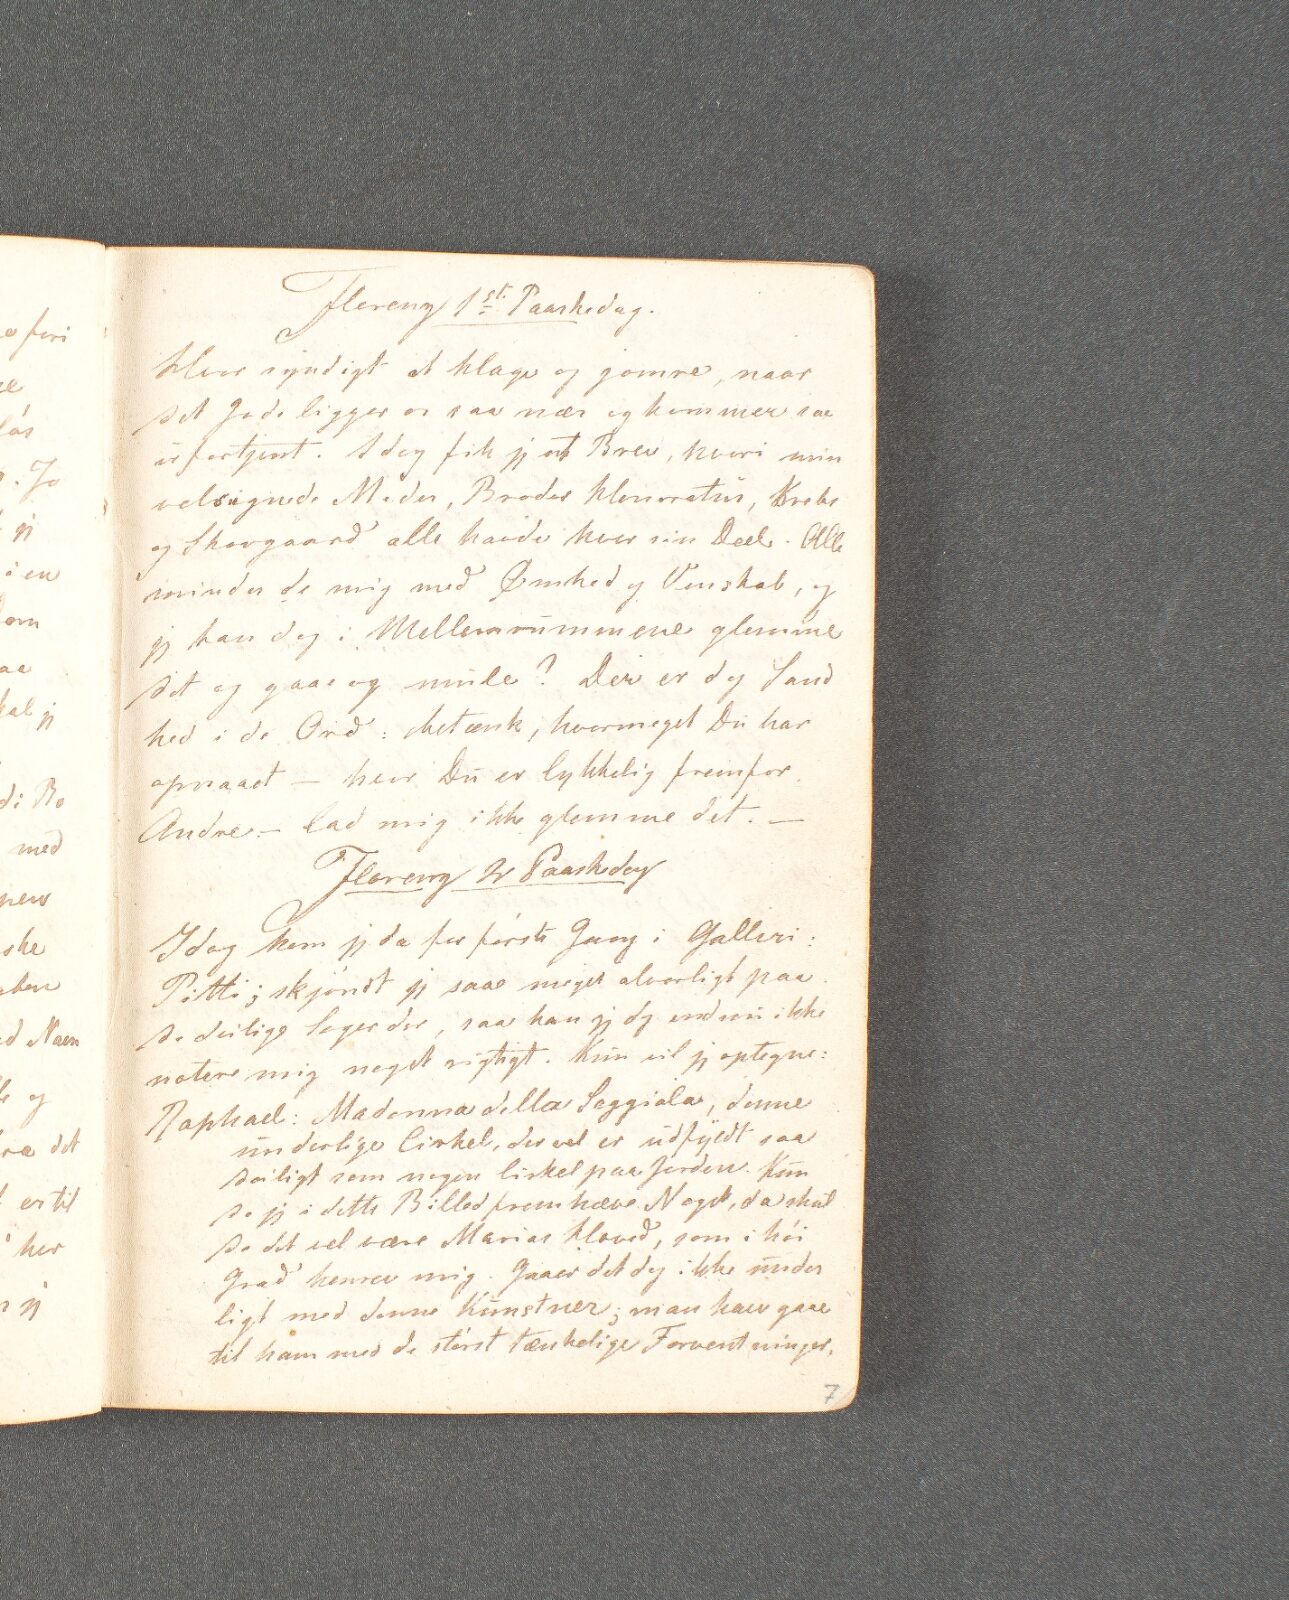 Florenz 1st. Paaskedag.
Hvor syndigt at klage og jamre, naar
det Gode ligger os saa nær og kommer saa
ufortjent. Idag fik jeg et Brev, hvori min
velsignede Moder, Broder Honoratus, Krebs
og Skovgaard alle havde hver sin Deel. Alle
minder de mig med Ømhed og Venskab, og
jeg kan dog i Mellemrummene glemme
det og gaae og mule? Der er dog Sand
hed i de Ord: betænk, hvormeget Du har
opnaaet — hvor Du er lykkelig fremfor
Andre — lad mig ikke glemme det. —
Florenz 2 Paaskedag
Idag kom jeg da for første Gang i Galleri:
Pitti; skjøndt jeg saae meget alvorligt paa
de deilige Sager der, saa kan jeg dog endnu ikke
notere mig noget rigtigt. Kun vil jeg optegne:
Raphael: Madonna della Seggiola, denne
underlige Cirkel, der vel er udfyldt saa
deiligt som nogen Cirkel paa Jorden. Kun
jeg i dette Billed fremhæve Noget, da skul
de det vel være Marias Hoved, som i høi
Grad henrev mig. Gaaer det dog ikke under
ligt med denne Kunstner; man kan gaae
til ham med de størst tænkelige Forventninger,
7
fori
læs
. Jo
jeg
i en
kal jeg
med
ske
d Navn
og
det
er til
her
jeg